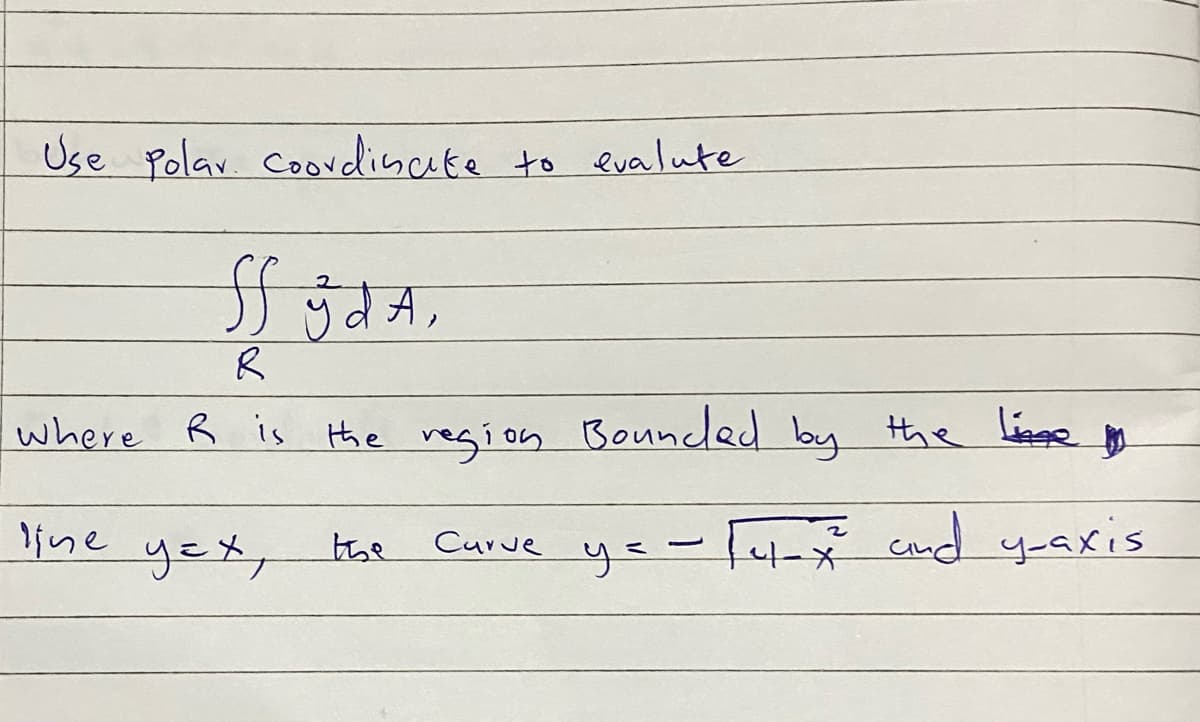 Use Polar. Coordinate to evalute
∬ y² dA,
R
where R is the region Bounded by the
line y=x, the Curve y = - √4-x² and y-axis